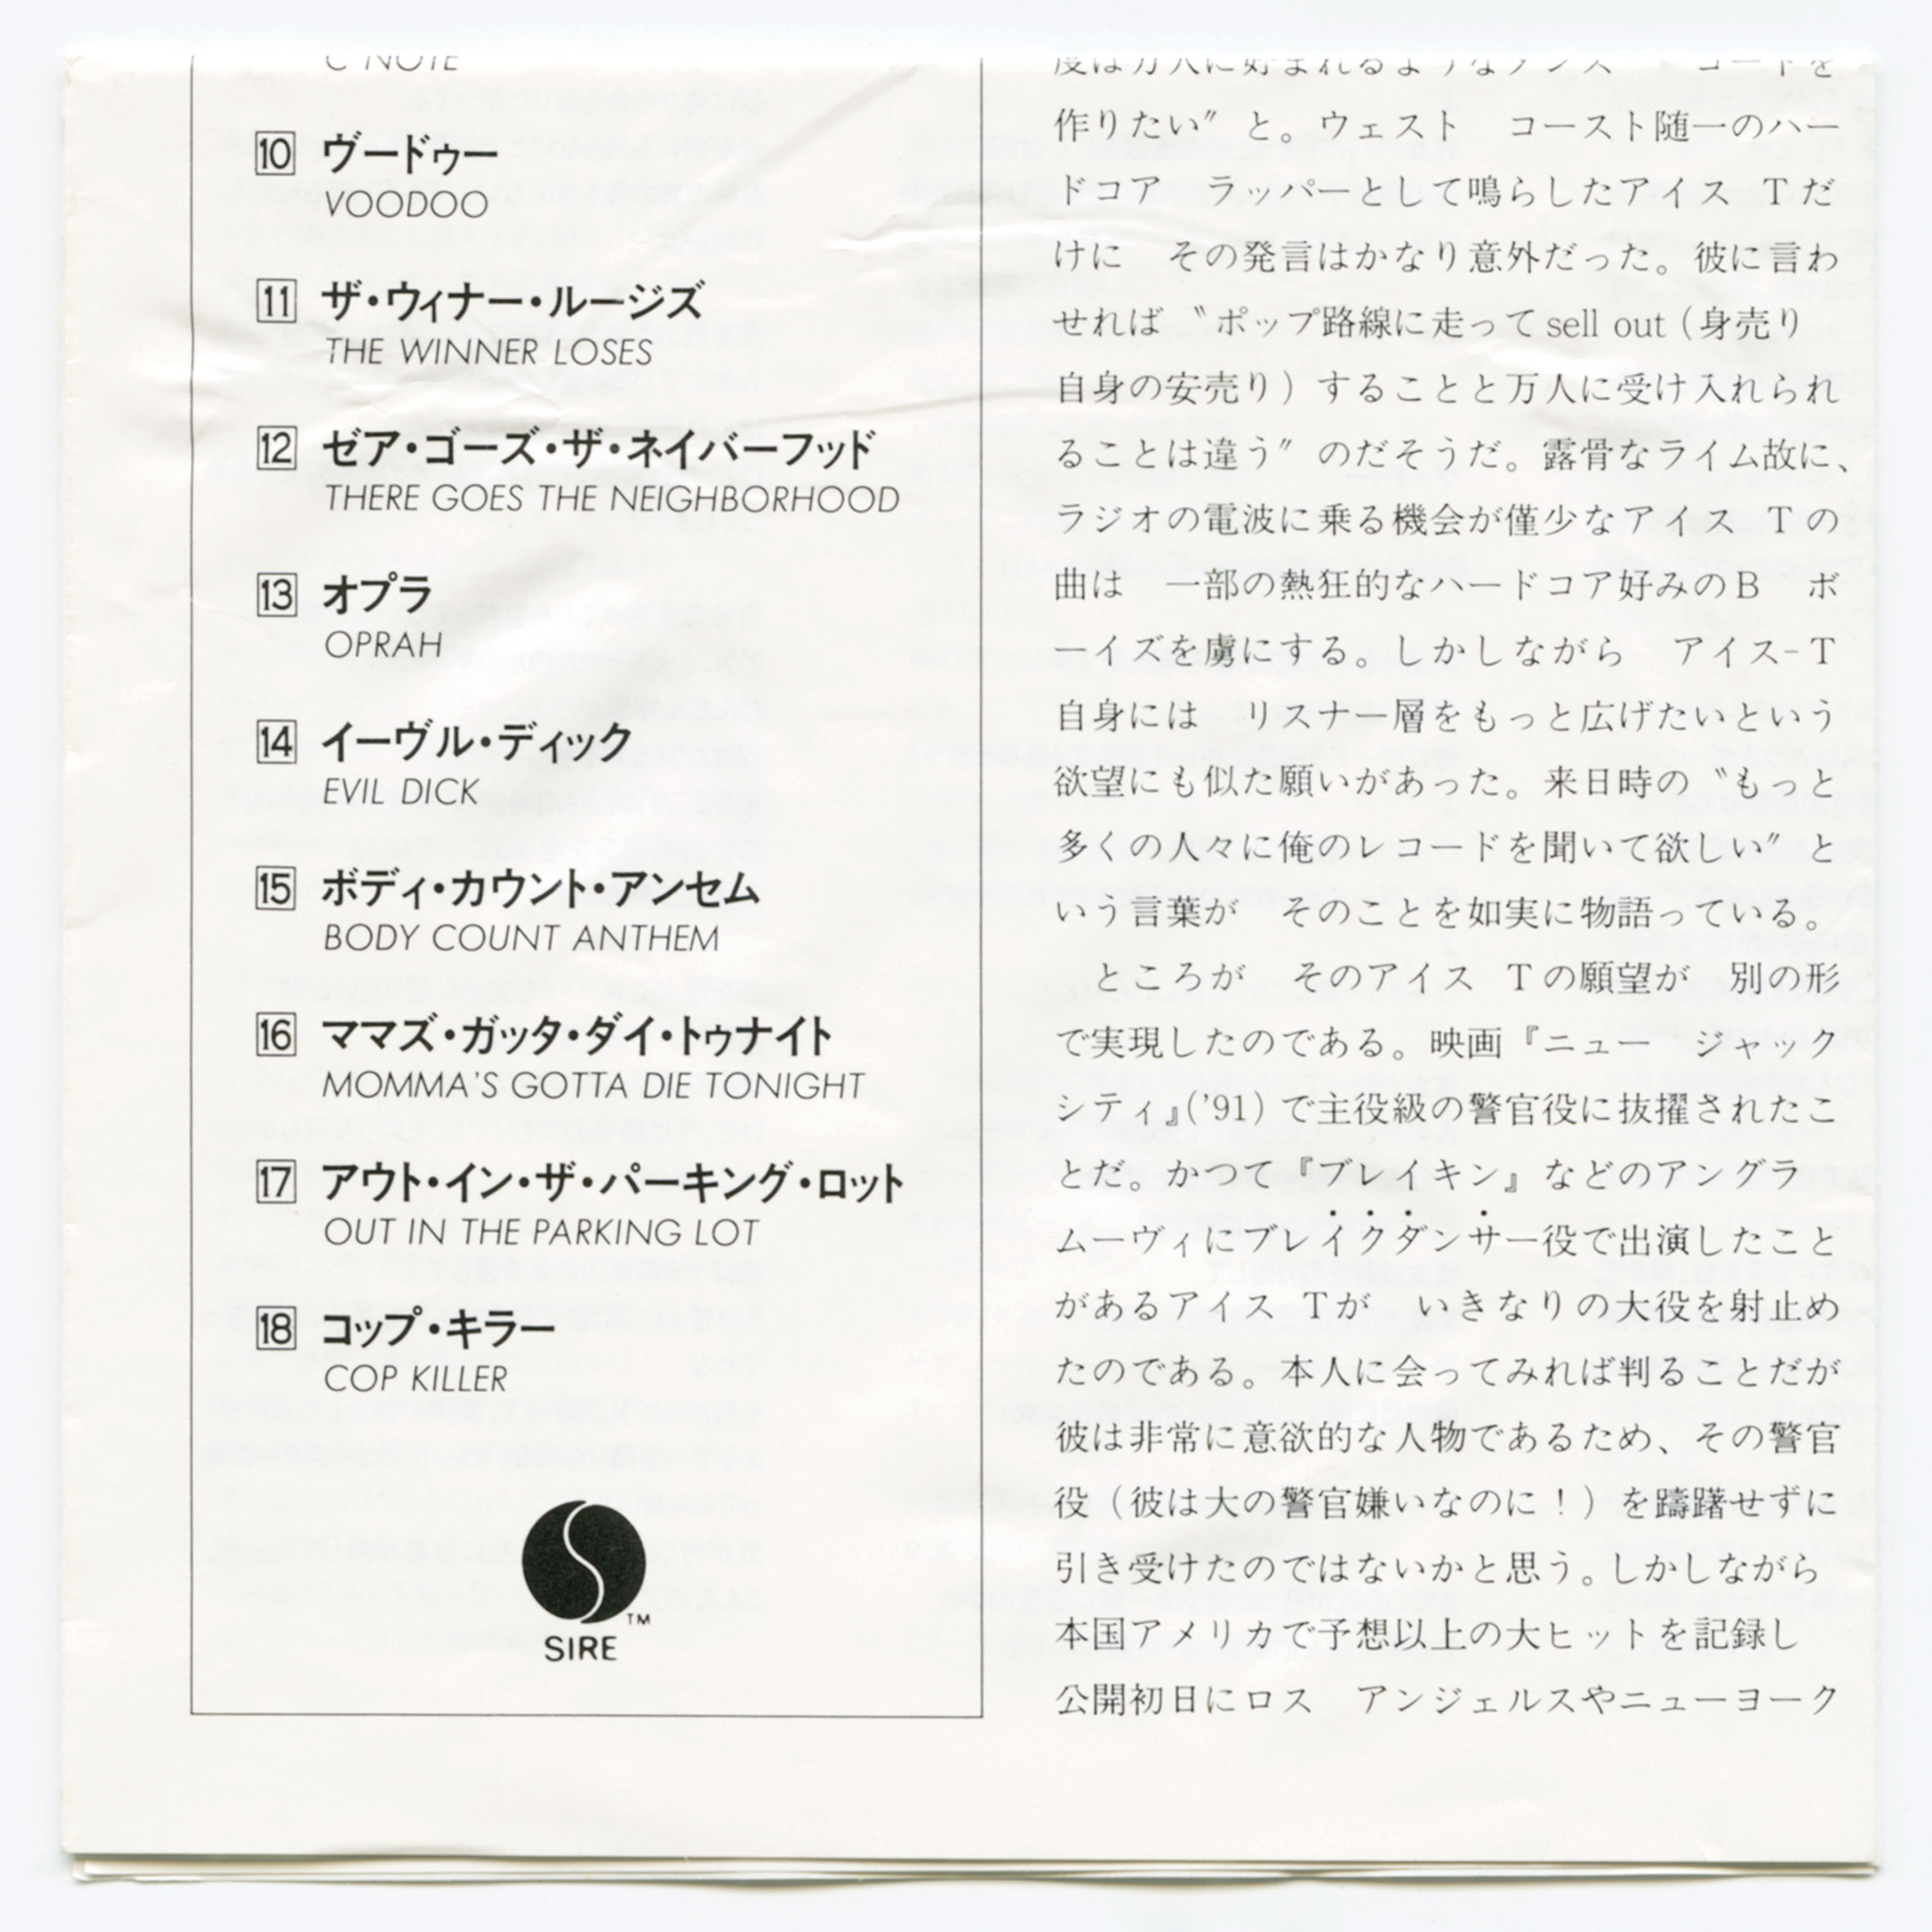 C NOTE
10 ヴードゥー
VOODOO
11 ザ・ウィナー・ルージズ
THE WINNER LOSES
12 ゼア・ゴーズ・ザ・ネイバーフッド
THERE GOES THE NEIGHBORHOOD
13 オプラ
OPRAH
14 イーヴル・ディック
EVIL DICK
15 ボディ・カウント・アンセム
BODY COUNT ANTHEM
16 ママズ・ガッタ・ダイ・トゥナイト
MOMMA'S GOTTA DIE TONIGHT
17 アウト・イン・ザ・パーキング・ロット
OUT IN THE PARKING LOT
18 コップ・キラー
COP KILLER
TM
SIRE
度は万人に好まれるようなダンス コードを
作りたい〟と。ウェスト コースト随一のハー
ドコア ラッパーとして鳴らしたアイス Tだ
けに その発言はかなり意外だった。彼に言わ
せれば〝ポップ路線に走ってsell out(身売り
自身の安売り)することと万人に受け入れられ
ることは違う〟のだそうだ。露骨なライム故に、
ラジオの電波に乗る機会が僅少なアイス Tの
曲は 一部の熱狂的なハードコア好みのB ボ
ーイズを虜にする。しかしながら アイス-T
自身には リスナー層をもっと広げたいという
欲望にも似た願いがあった。来日時の〝もっと
多くの人々に俺のレコードを聞いて欲しい〟と
いう言葉が そのことを如実に物語っている。
ところが そのアイス Tの願望が 別の形
で実現したのである。映画『ニュー ジャック
シティ』('91)で主役級の警官役に抜擢されたこ
とだ。かつて『ブレイキン』などのアングラ
ムーヴィにブレイクダンサー役で出演したこと
があるアイス Tが いきなりの大役を射止め
たのである。本人に会ってみれば判ることだが
彼は非常に意欲的な人物であるため、その警官
役(彼は大の警官嫌いなのに!)を躊躇せずに
引き受けたのではないかと思う。しかしながら
本国アメリカで予想以上の大ヒットを記録し
公開初日にロス アンジェルスやニューヨーク